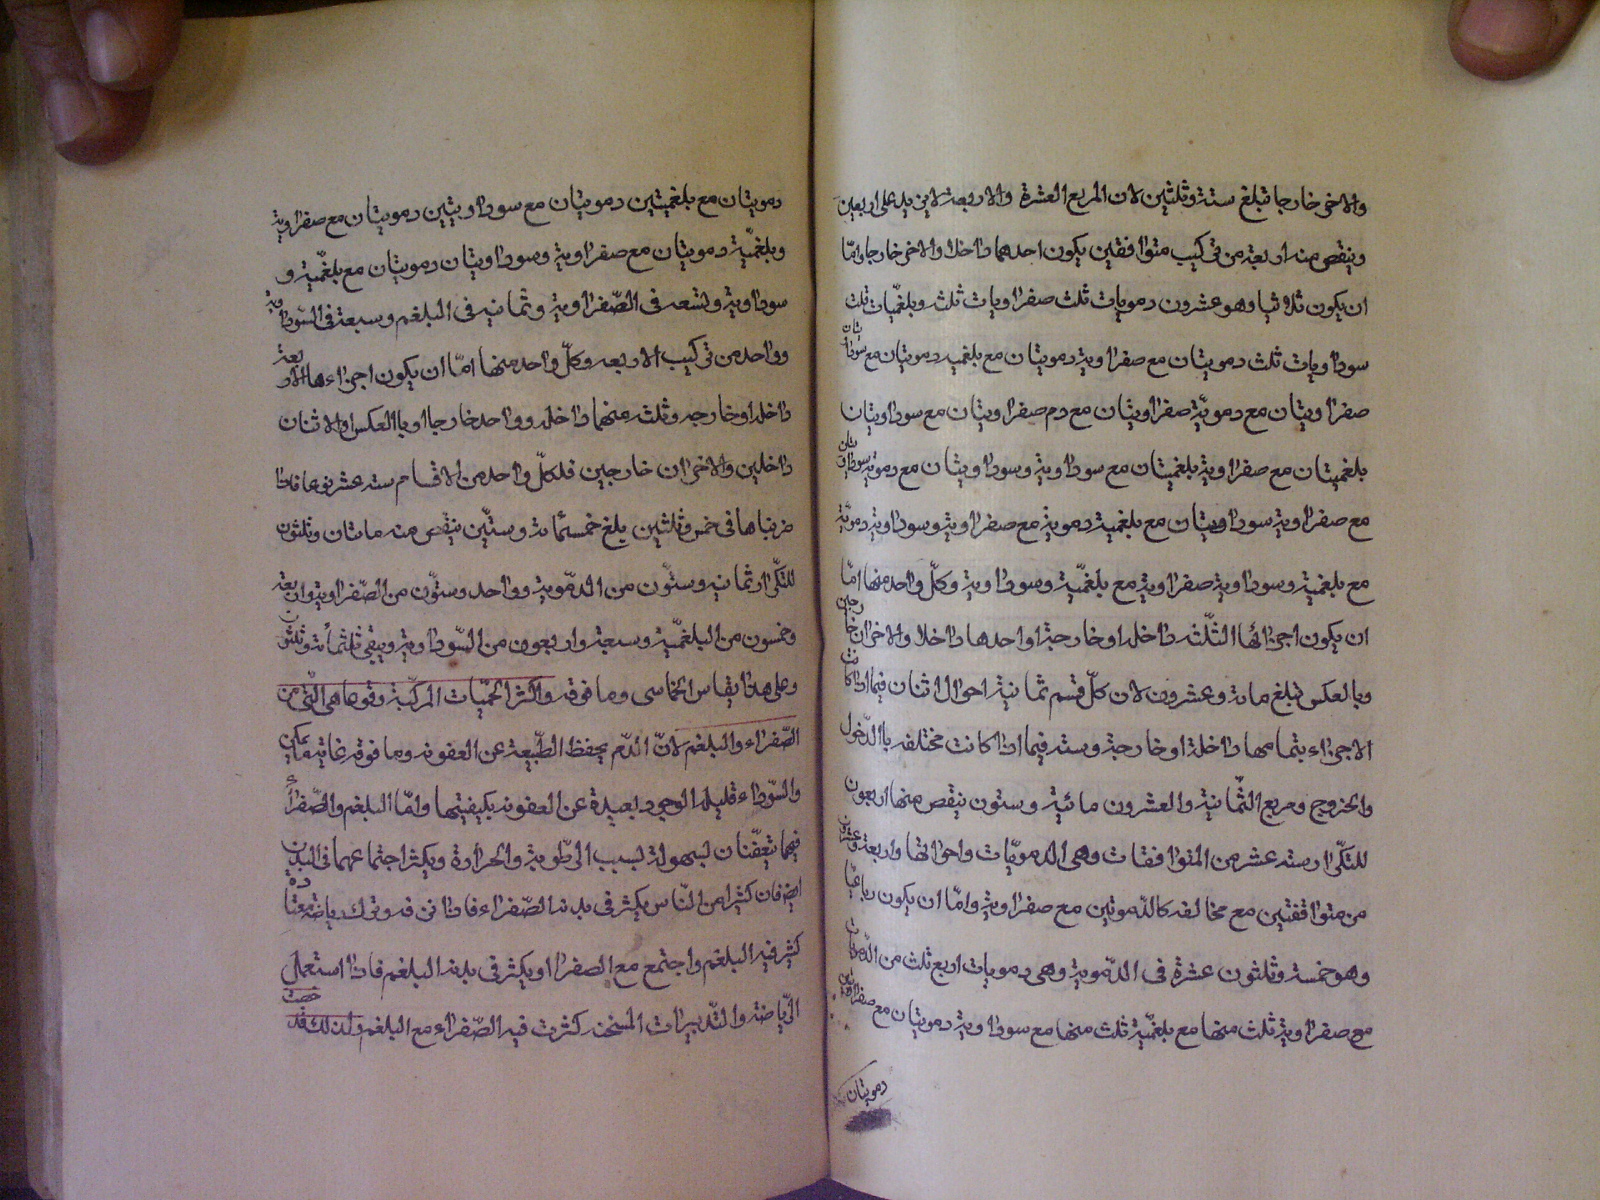 والاخرى خارجا تبلغ ستة وثلثين لان المربع العشرة والاربعة لا يزيد على اربعين
وينقص منه اربعة من تركيب متوافقين يكون احدهما داخلا والاخر خارجا واما
ان يكون ثلاثيا وهو عشرون دمويات ثلث صفراويات ثلث وبلغميات ثلث
سوداويات ثلث دمويتان مع صفراوية دمويتان مع بلغمية دمويتان مع سوداو
صفراويتان مع دموية صفراويتان مع دم صفراويتان مع سوداويتان
بلغميتان مع صفراوية بلغميتان مع سوداوية وسوداويتان مع دموية سوداويتان
مع صفراوية سوداويتان مع بلغمية دموية مع صفراوية وسوداوية دموية
مع بلغمية وسوداوية صفراوية مع بلغمية وسوداوية وكل واحد منها اما
ان يكون اجزائها الثلثة داخلة او خارجة او احدها داخلا والاخران خارجين
وبالعكس تبلغ مائة وعشرون لان كل قسم ثمانية احوال اثنان فيما اذا كانت
الاجزاء بتمامها داخلة او خارجة وستة فيما اذا كانت مختلفه باالدخول
والخروج ومربع الثمانية والعشرون مائية وستون ينقص منها اربعون
للتكرار ستة عشر من المتوافقات وهى الدمويات واخواتها واربعة وعشرون
من متوافقتين مع مخالفه كالدمويتين مع صفراوية واما ان يكون رباعيا
وهو خمسة وثلثون عشرة فى الدموية وهى دمويات اربع ثلث من الدمويات
مع صفراوية ثلث منها مع بلغمية ثلث منها مع سوداوية دمويتان مع صفراويتين
دمويتان
دمويتان مع بلغميتين دمويتان مع سوداويتين دمويتان مع صفراوية
وبلغمية دمويتان مع صفراوية وسوداويتان دمويتان مع بلغمية و
سوداوية وتسعه فى الصفراوية وثمانيه فى البلغم وسبعة فى السوداوية
وواحد من تركيب الاربعه وكل واحد منها اما ان يكون اجزاءها الاربعة
داخلة او خارجه وثلثه منهما داخله وواحد خارجا او باالعكس اوالاثنان
داخلين والاخران خارجين فلكل واحد من الاقسام ستة عشر نوعا فاذا
ضربناها فى خمس وثلثين يلغ خمسمائة وستين ينقص منه ماىتان وثلثون
للتكرار ثمانيه وستون من الدموية وواحد وستون من الصفراوية واربعة
وخمسون من البلغمية وسبعة واربعون من السوداوية ويبقى ثلثمائة وثلثون
وعلى هذا يقاس الخماسى وما فوقه واكثر الحميات المركبة وقوعا هى التى من
الصفراء والبلغم لان الدم يحفظ الطبيعة عن العفونه وما فوقه غاية ممكن
والسوداء قليلة الوجود بعيدة عن العفونه بكيفيتها واما البلغم والصفراء
فهما يتعفنان لسهولة لسبب الرطوبة والحرارة ويكثر اجتماعهما فى البدن
ايضا فان كثيرا من الناس يكثر فى بدنه الصفراء فاذا ترفه وترك رياضة معتادة
كثر فيه البلغم واجتمع مع الصفرا او يكثر فى بدنه البلغم فاذا استعمل
الرياضة والتدبيرات المسخنه كثرت فيه الصفراء مع البلغم ولذلك قد خصت